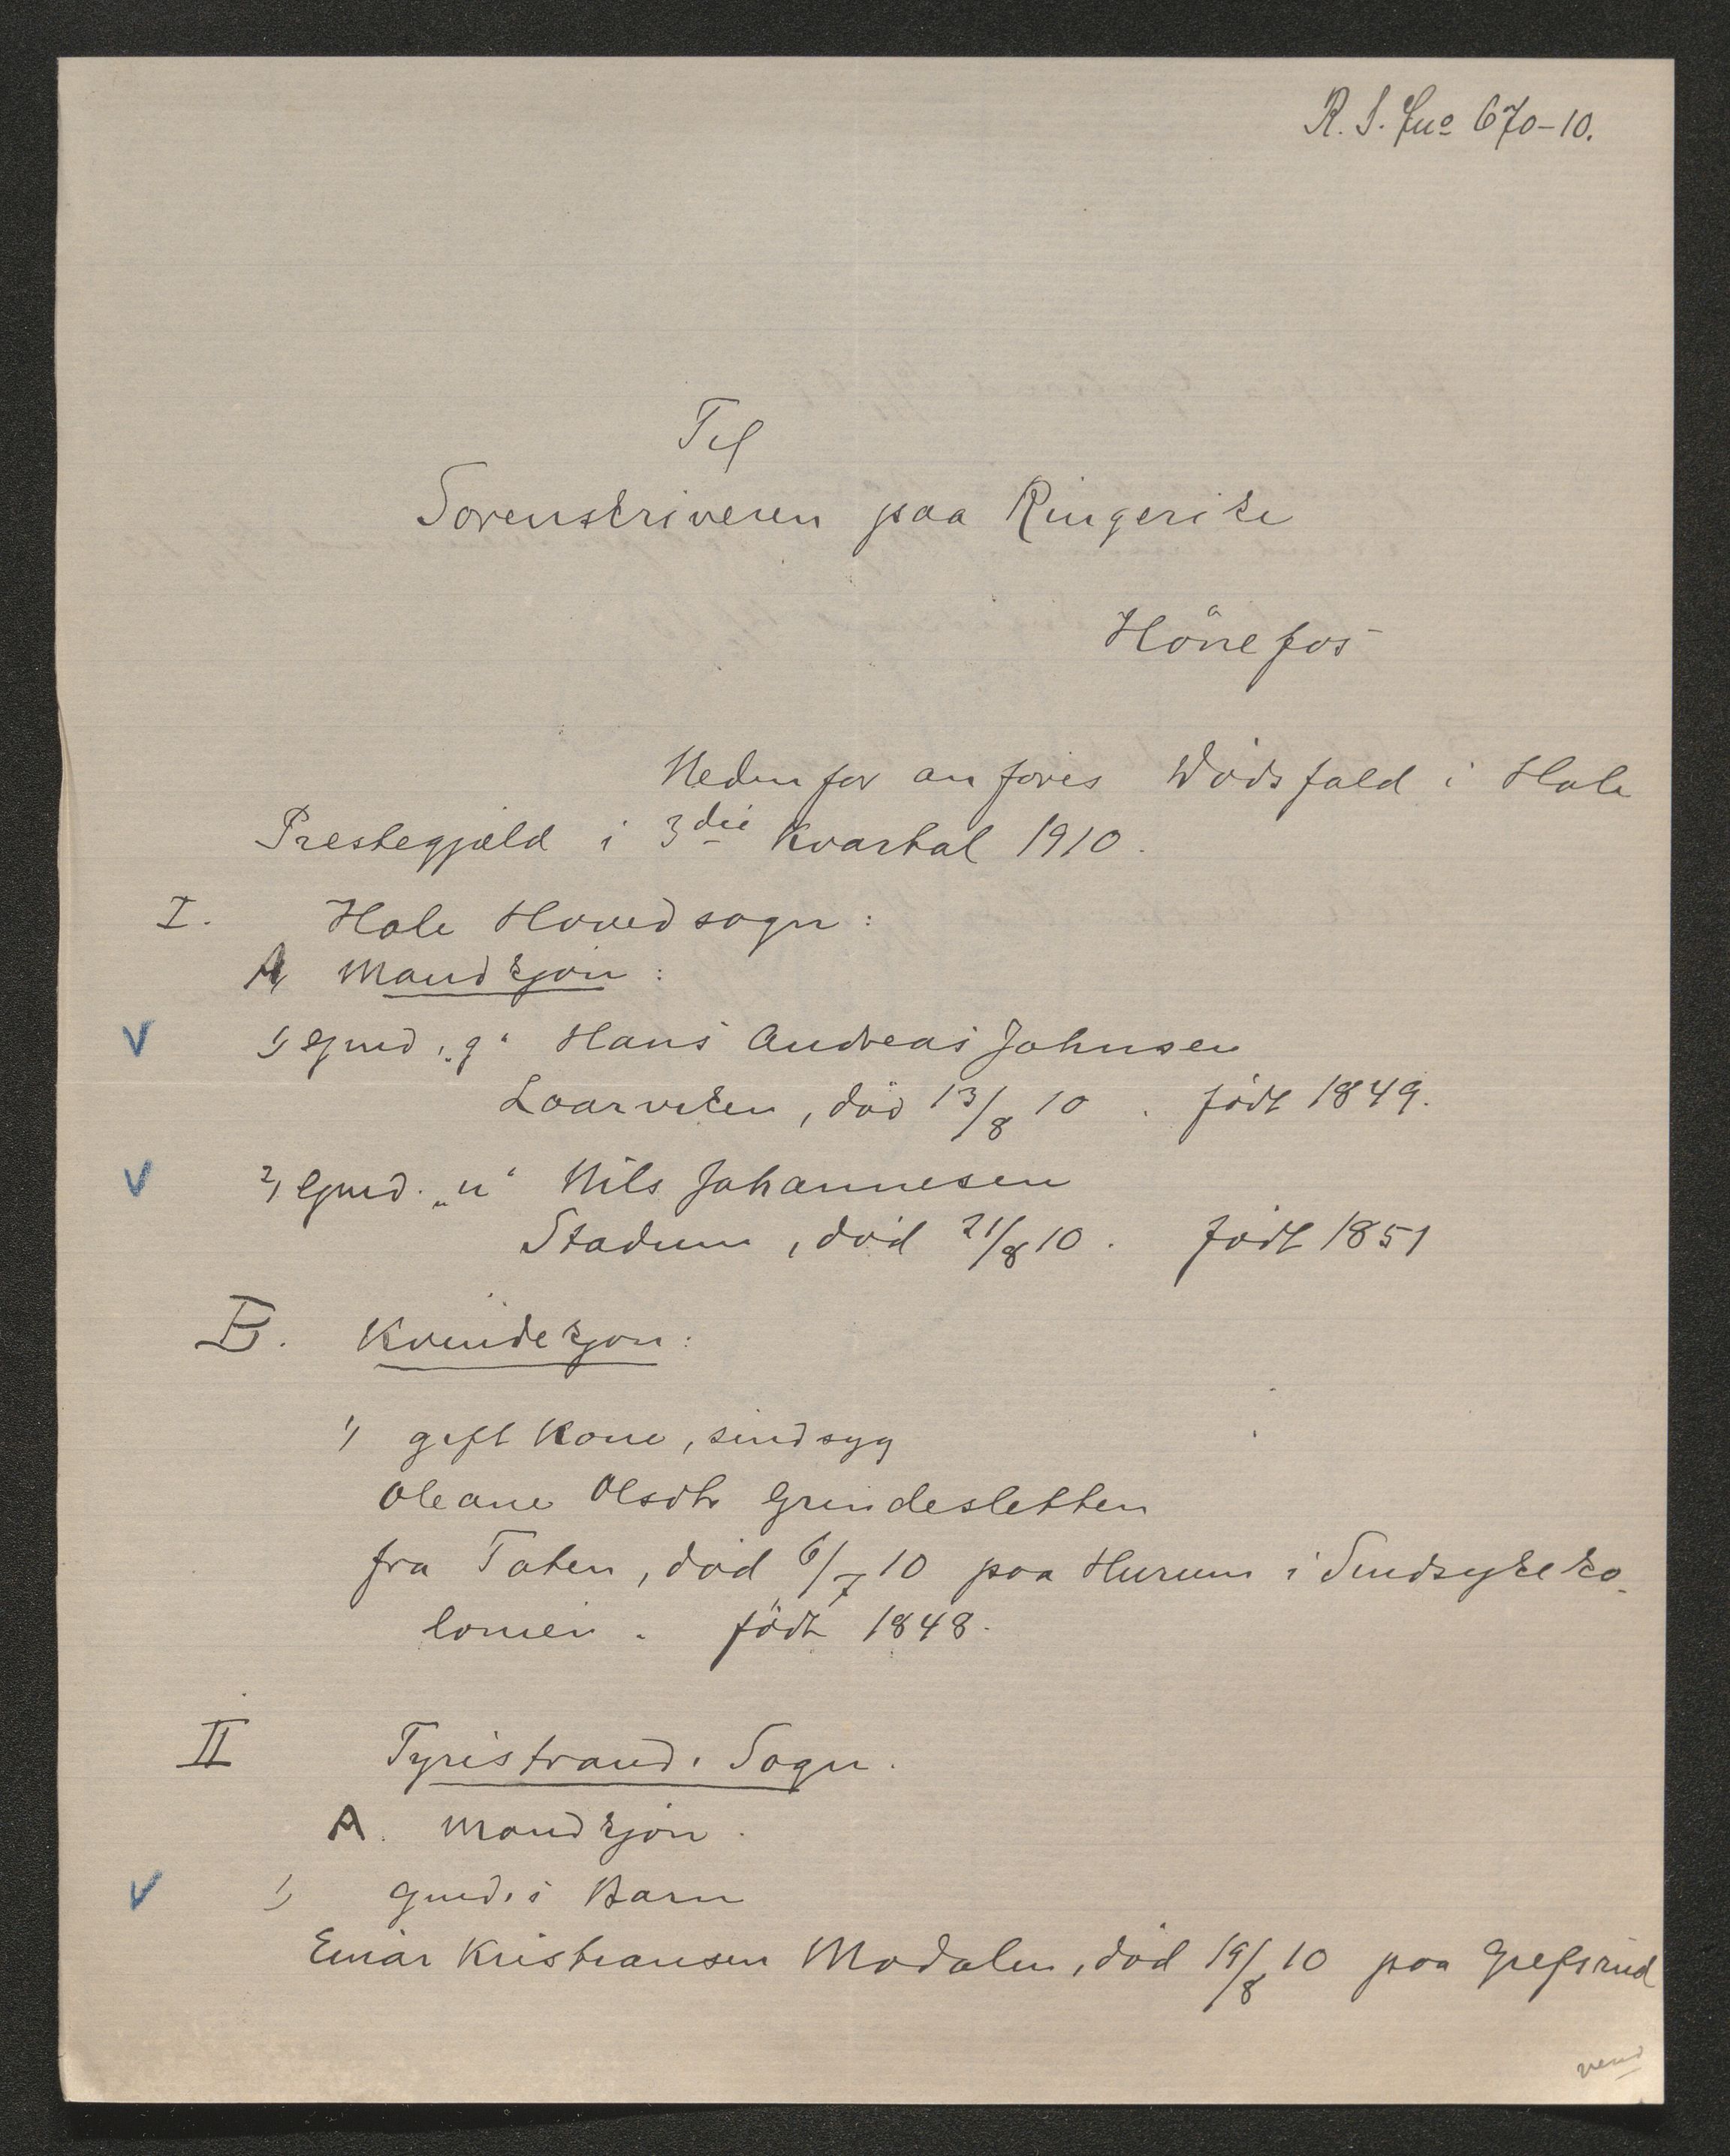 R. S. Jno 670-10.
Til
Sorenskriveren paa Ringerike
Hönefos
Nedenfor anföres Dödsfald i Hole
Prestegjæld i 3die Kvartal 1910.
I. Hole Hovedsogn:
A Mandkjön:
✓ 1) Gmd. „g“ Hans Andreas Johnsen
Laarviken, död 13/8 10. födt 1849.
✓ 2) Gmd. „u“ Nils Johannesen
Stadum, död 21/8 10. Födt 1851
B. Kvindekjön:
1) gift Kone, sindsyg
Oleane Olsdtr Grindesletten
fra Toten, död 6/7 10 paa Hurum i Sindsykeko-
lonien. födt 1848.
II Tyristrand. Sogn.
A. Mandkjön.
✓ 1) Gmd. i Barn
Einar Kristiansen Modalen, död 19/8 10 paa Grefsrud
vend